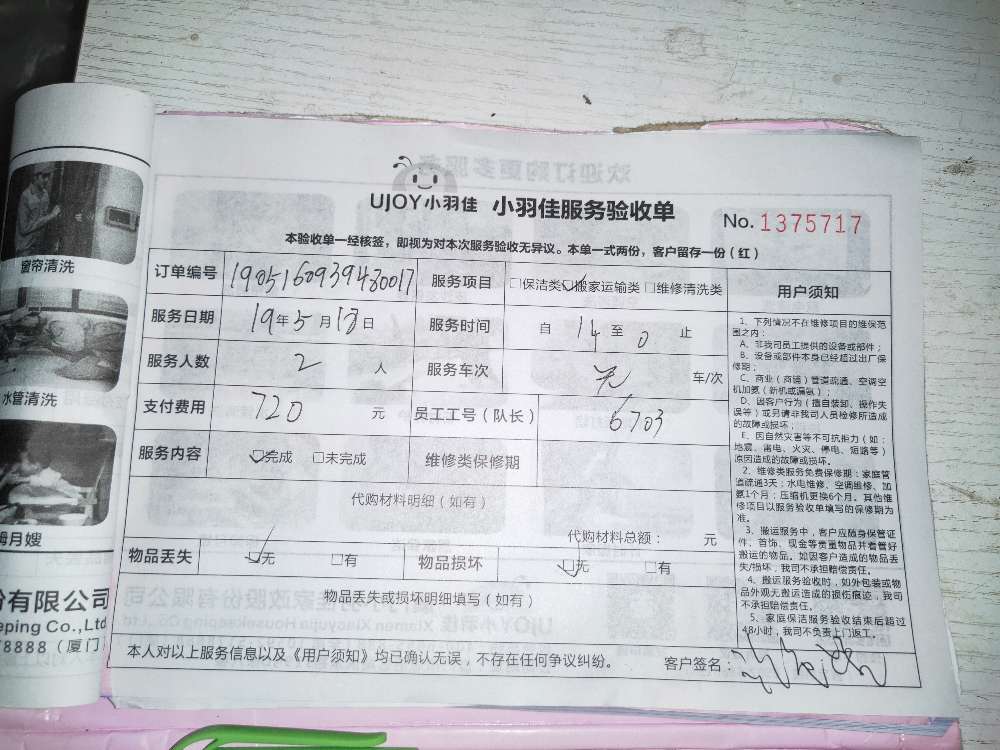 欢迎订购更多服务
UJOY小羽佳 小羽佳服务验收单
No. 1375717
本验收单一经核签，即视为对本次服务验收无异议。本单一式两份，客户留存一份（红）
订单编号 1905160939480017 服务项目 □保洁类 ☑搬家运输类 □维修清洗类
服务日期 19年5月18日 服务时间 自14至0止
服务人数 2人 服务车次 无 车/次
支付费用 720元 员工工号（队长） 6703
服务内容 ☑完成 □未完成 维修类保修期
代购材料明细（如有）
代购材料总额： 元
物品丢失 ☑无 □有 物品损坏 ☑无 □有
物品丢失或损坏明细填写（如有）
本人对以上服务信息以及《用户须知》均已确认无误，不存在任何争议纠纷。 客户签名：
用户须知
1、下列情况不在维修项目的维保范
围之内：
A、非我司员工提供的设备或部件；
B、设备或部件本身已经超过出厂保
修期；
C、商业（商铺）管道疏通、空调空
机加氨（新机或漏氨）；
D、因客户行为（擅自装卸、操作失
误等）或另请非我司人员检修所造成
的故障或损坏；
E、因自然灾害等不可抗拒力（如：
地震、雷电、火灾、停电、短路等）
原因造成的故障或损坏。
2、维修类服务免费保修期：家庭管
道疏通3天；水电维修、空调维修、加
氨1个月；压缩机更换6个月。其他维
修项目以服务验收单填写的保修期为
准。
3、搬运服务中，客户应随身保管证
件、首饰、现金等贵重物品并看管好
搬运的物品。如因客户造成的物品丢
失/损坏，我司不承担赔偿责任。
4、搬运服务验收时，如外包装或物
品外观无搬运造成的损伤痕迹，我司
不承担赔偿责任。
5、家庭保洁服务验收结束后超过
48小时，我司不负责上门返工。
窗帘清洗
水管清洗
月嫂
有限公司
eping Co.,Ltd
78888（厦门